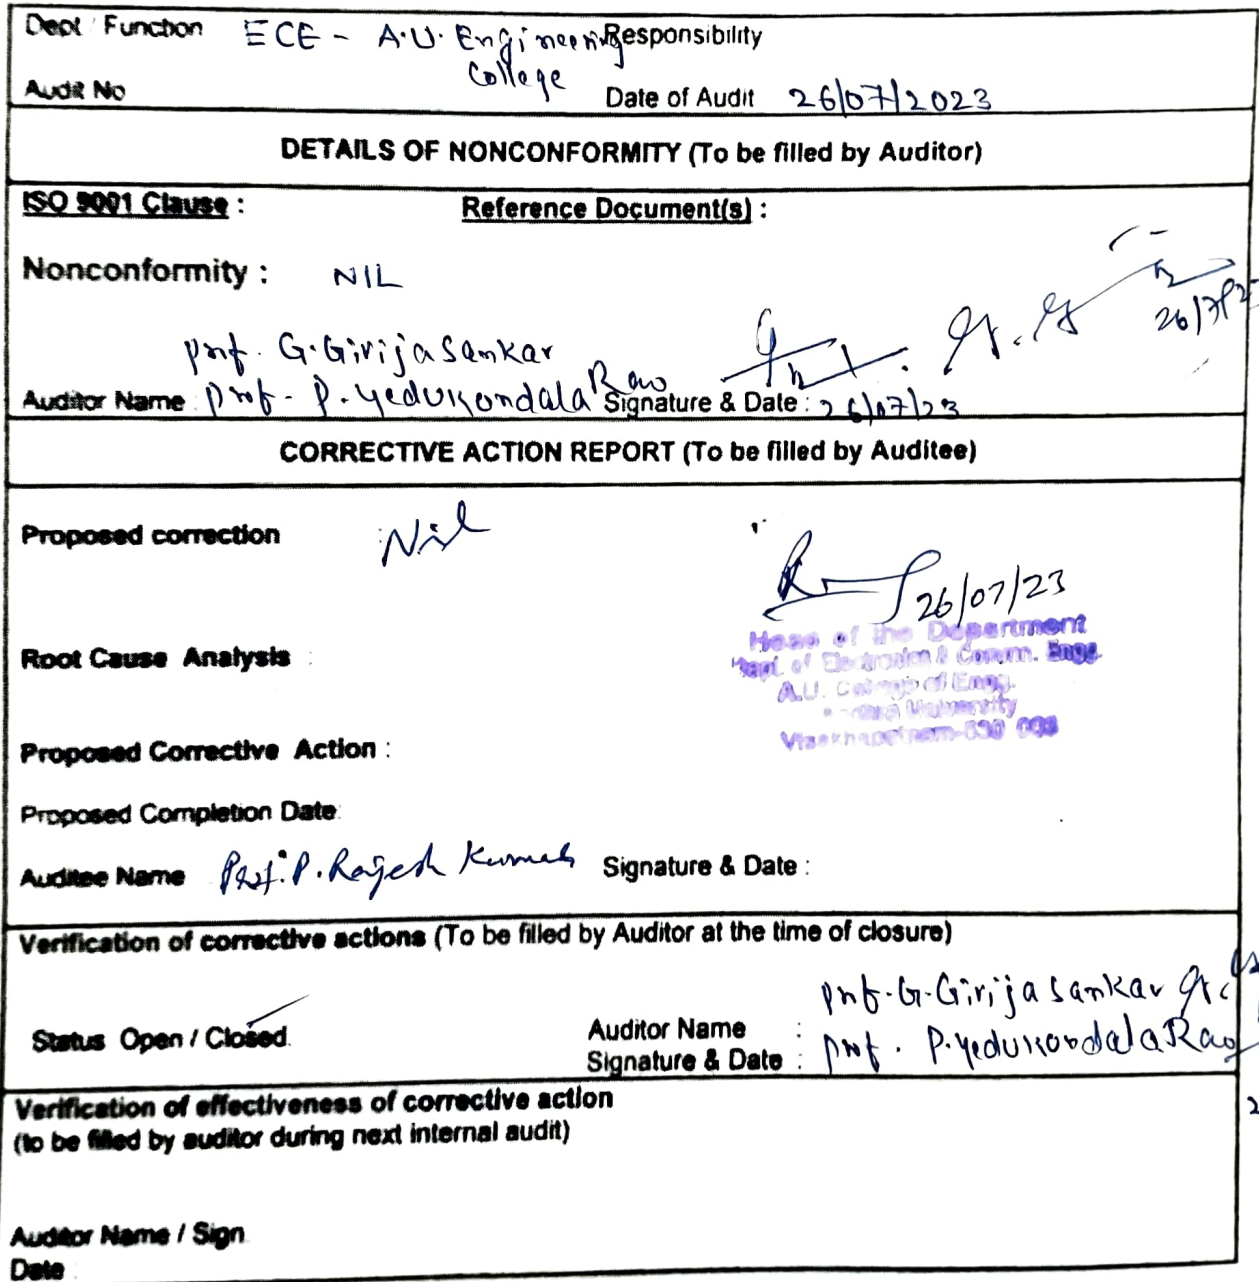 Dept / Function ECE - A.U. Engineering College Responsibility
Audit No Date of Audit 26/07/2023
DETAILS OF NONCONFORMITY (To be filled by Auditor)
ISO 9001 Clause : Reference Document(s) :
Nonconformity : NIL
26/7/23
prof. G. Girija Sankar
Auditor Name : prof. P. Yedukondala Rao Signature & Date : 26/07/23
CORRECTIVE ACTION REPORT (To be filled by Auditee)
Proposed correction : Nil
26/07/23
Head of the Department
Dept. of Electronics & Comm. Engg.
A.U. College of Engg.
Andhra University
Visakhapatnam-530 003
Root Cause Analysis :
Proposed Corrective Action :
Proposed Completion Date:
Auditee Name Prof. P. Rajesh Kumar Signature & Date :
Verification of corrective actions (To be filled by Auditor at the time of closure)
prof. G. Girija Sankar
Status Open / Closed. Auditor Name :
Signature & Date : prof. P. Yedukondala Rao
Verification of effectiveness of corrective action
(to be filled by auditor during next internal audit)
Auditor Name / Sign
Date :